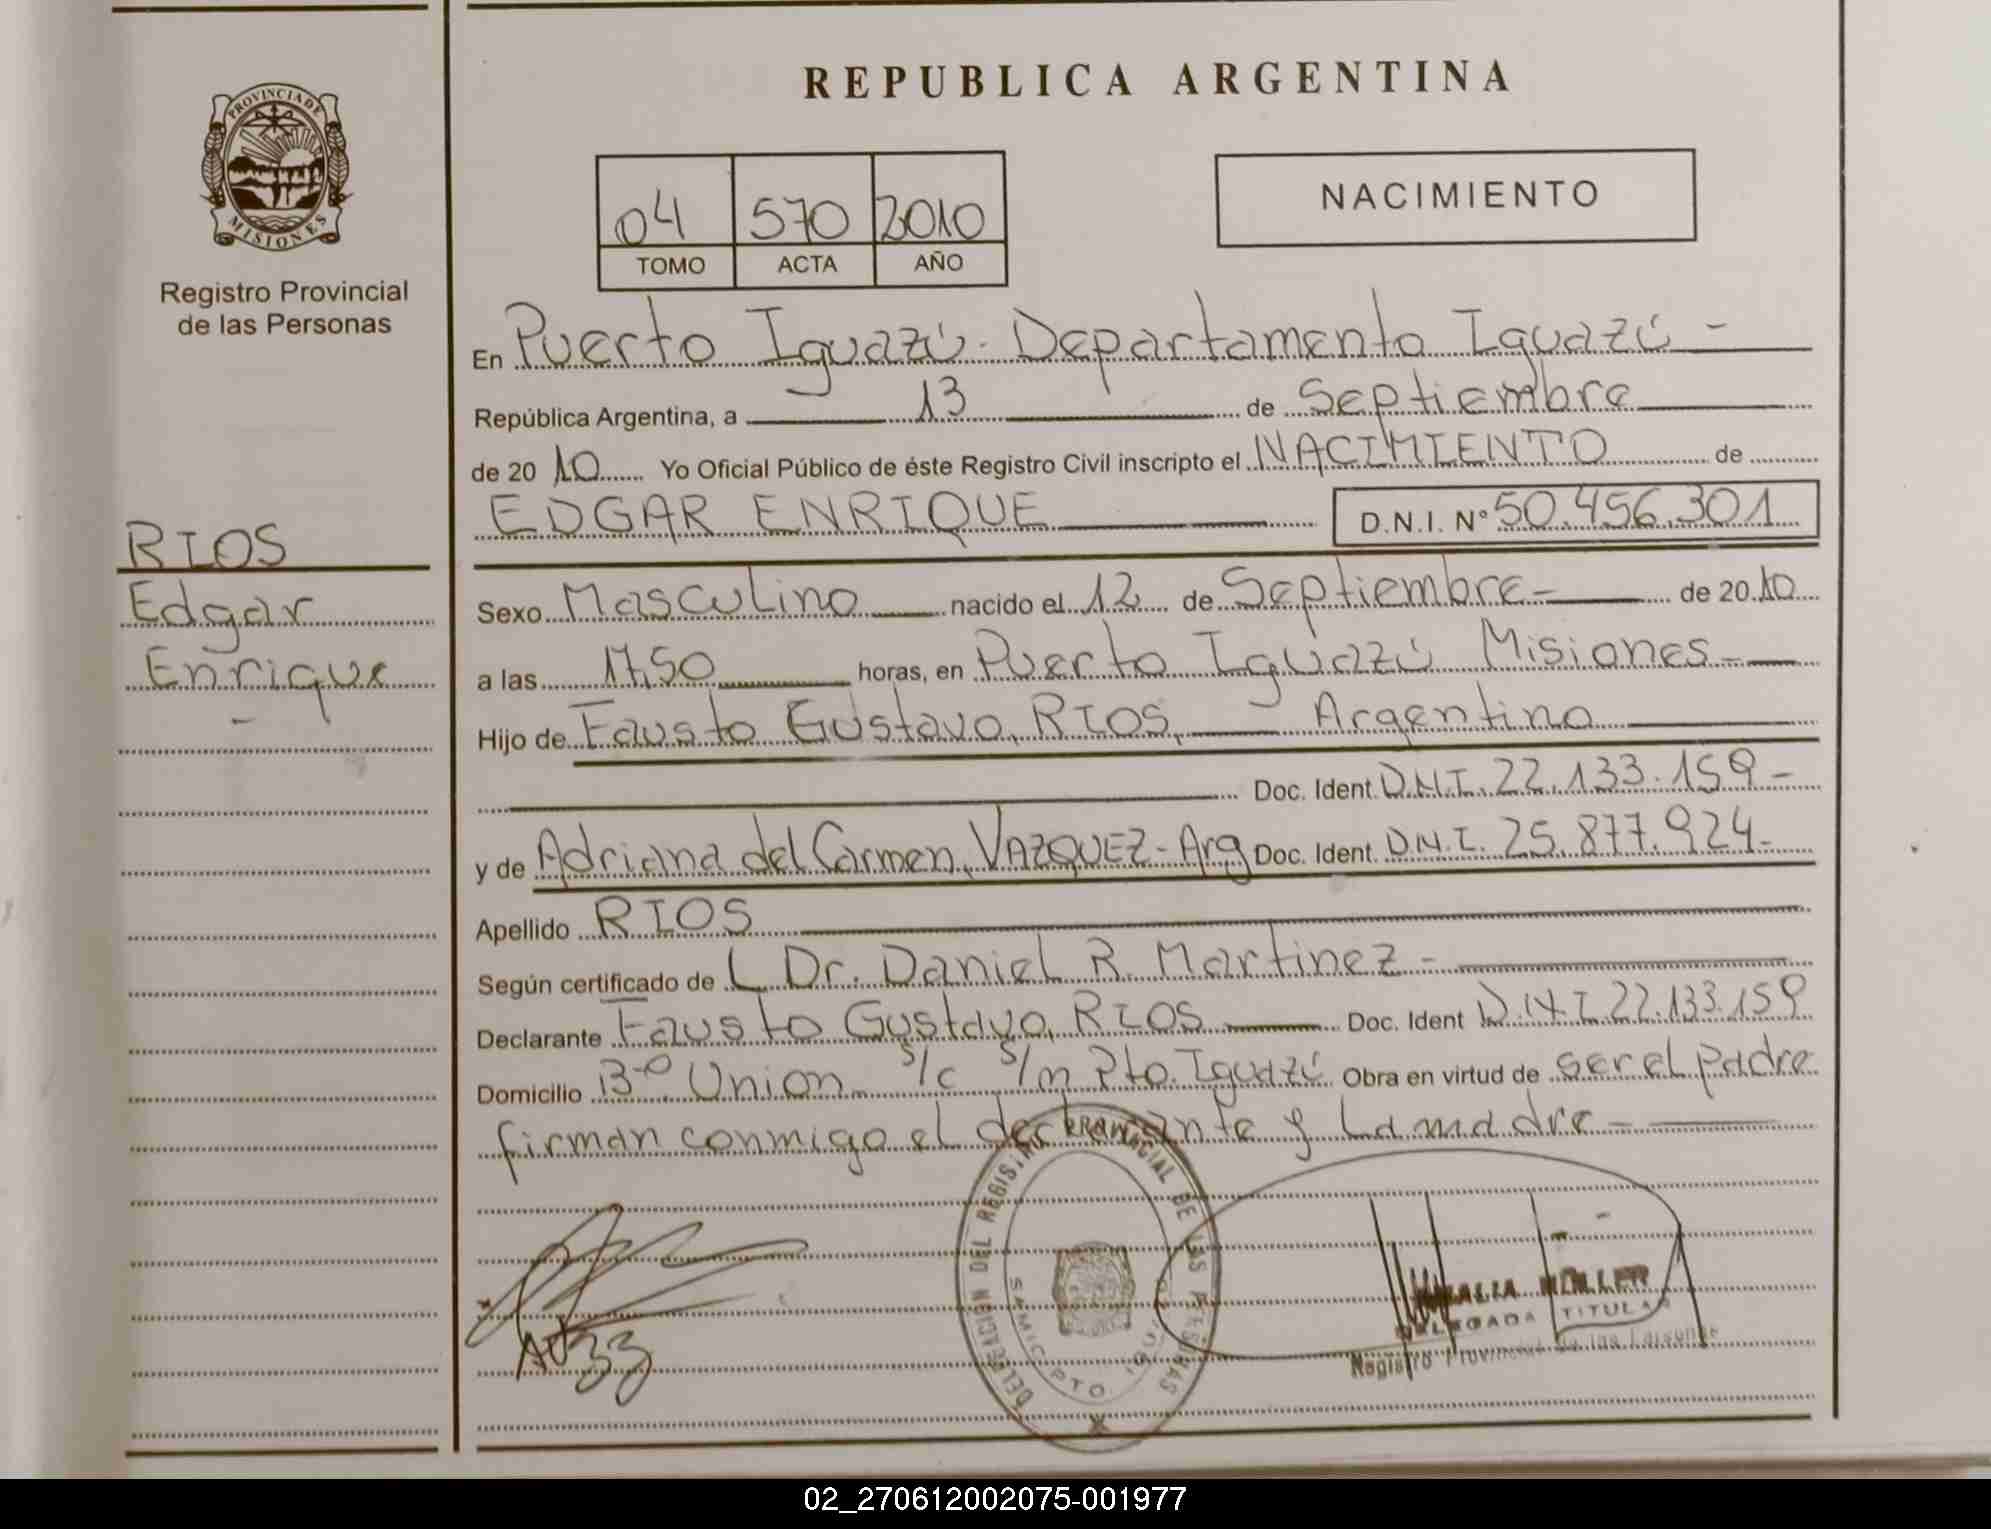 REPUBLICA ARGENTINA
PROVINCIA DE
MISIONES
Registro Provincial
de las Personas
04 570 2010
TOMO ACTA AÑO
NACIMIENTO
En Puerto Iguazú. Departamento Iguazú -
República Argentina, a 13 de Septiembre
de 20 10 Yo Oficial Público de éste Registro Civil inscripto el NACIMIENTO de
EDGAR ENRIQUE D.N.I. Nº 50.456.301
RIOS
Edgar
Enrique
-
Sexo Masculino nacido el 12 de Septiembre - de 20 10
a las 17,50 horas, en Puerto Iguazú Misiones -
Hijo de Fausto Gustavo, RIOS, Argentino
Doc. Ident. D.N.I. 22.133.159 -
y de Adriana del Carmen, VAZQUEZ - Arg Doc. Ident. D.N.I. 25.877.924 -
Apellido RIOS
Según certificado de Dr. Daniel R. Martinez -
Declarante Fausto Gustavo, RIOS Doc. Ident D.N.I 22.133.159
Domicilio Bº Union S/c S/n Pto. Iguazú Obra en virtud de ser el padre
firman conmigo el declarante y La madre -
DELEGACION DEL REGISTRO PROVINCIAL DE LAS PERSONAS
PTO.
MÜLLER
DELEGADA TITULAR
Registro Provincial de las Personas
02_270612002075-001977